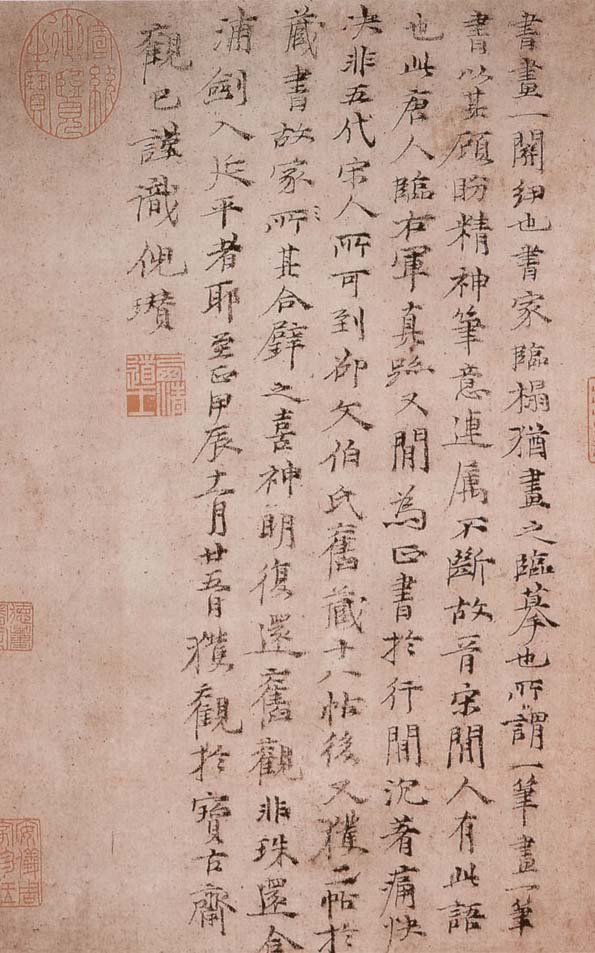 書畫一關紐也書家臨榻猶畫之臨摹也所謂一筆畫一筆
書以其顧盼精神筆意連属不斷故晉宋間人有此語
也此唐人臨右軍真跡又間為正書於行間沉著痛快
决非五代宋人所可到邵文伯氏舊藏十八帖後又獲二帖於
藏書故家所其合璧之喜神明復還舊觀非珠還合
浦劍入延平者耶至正甲辰十一月廿五日獲觀於寶古齋
觀已謹識倪瓚
宣統御覽之寶